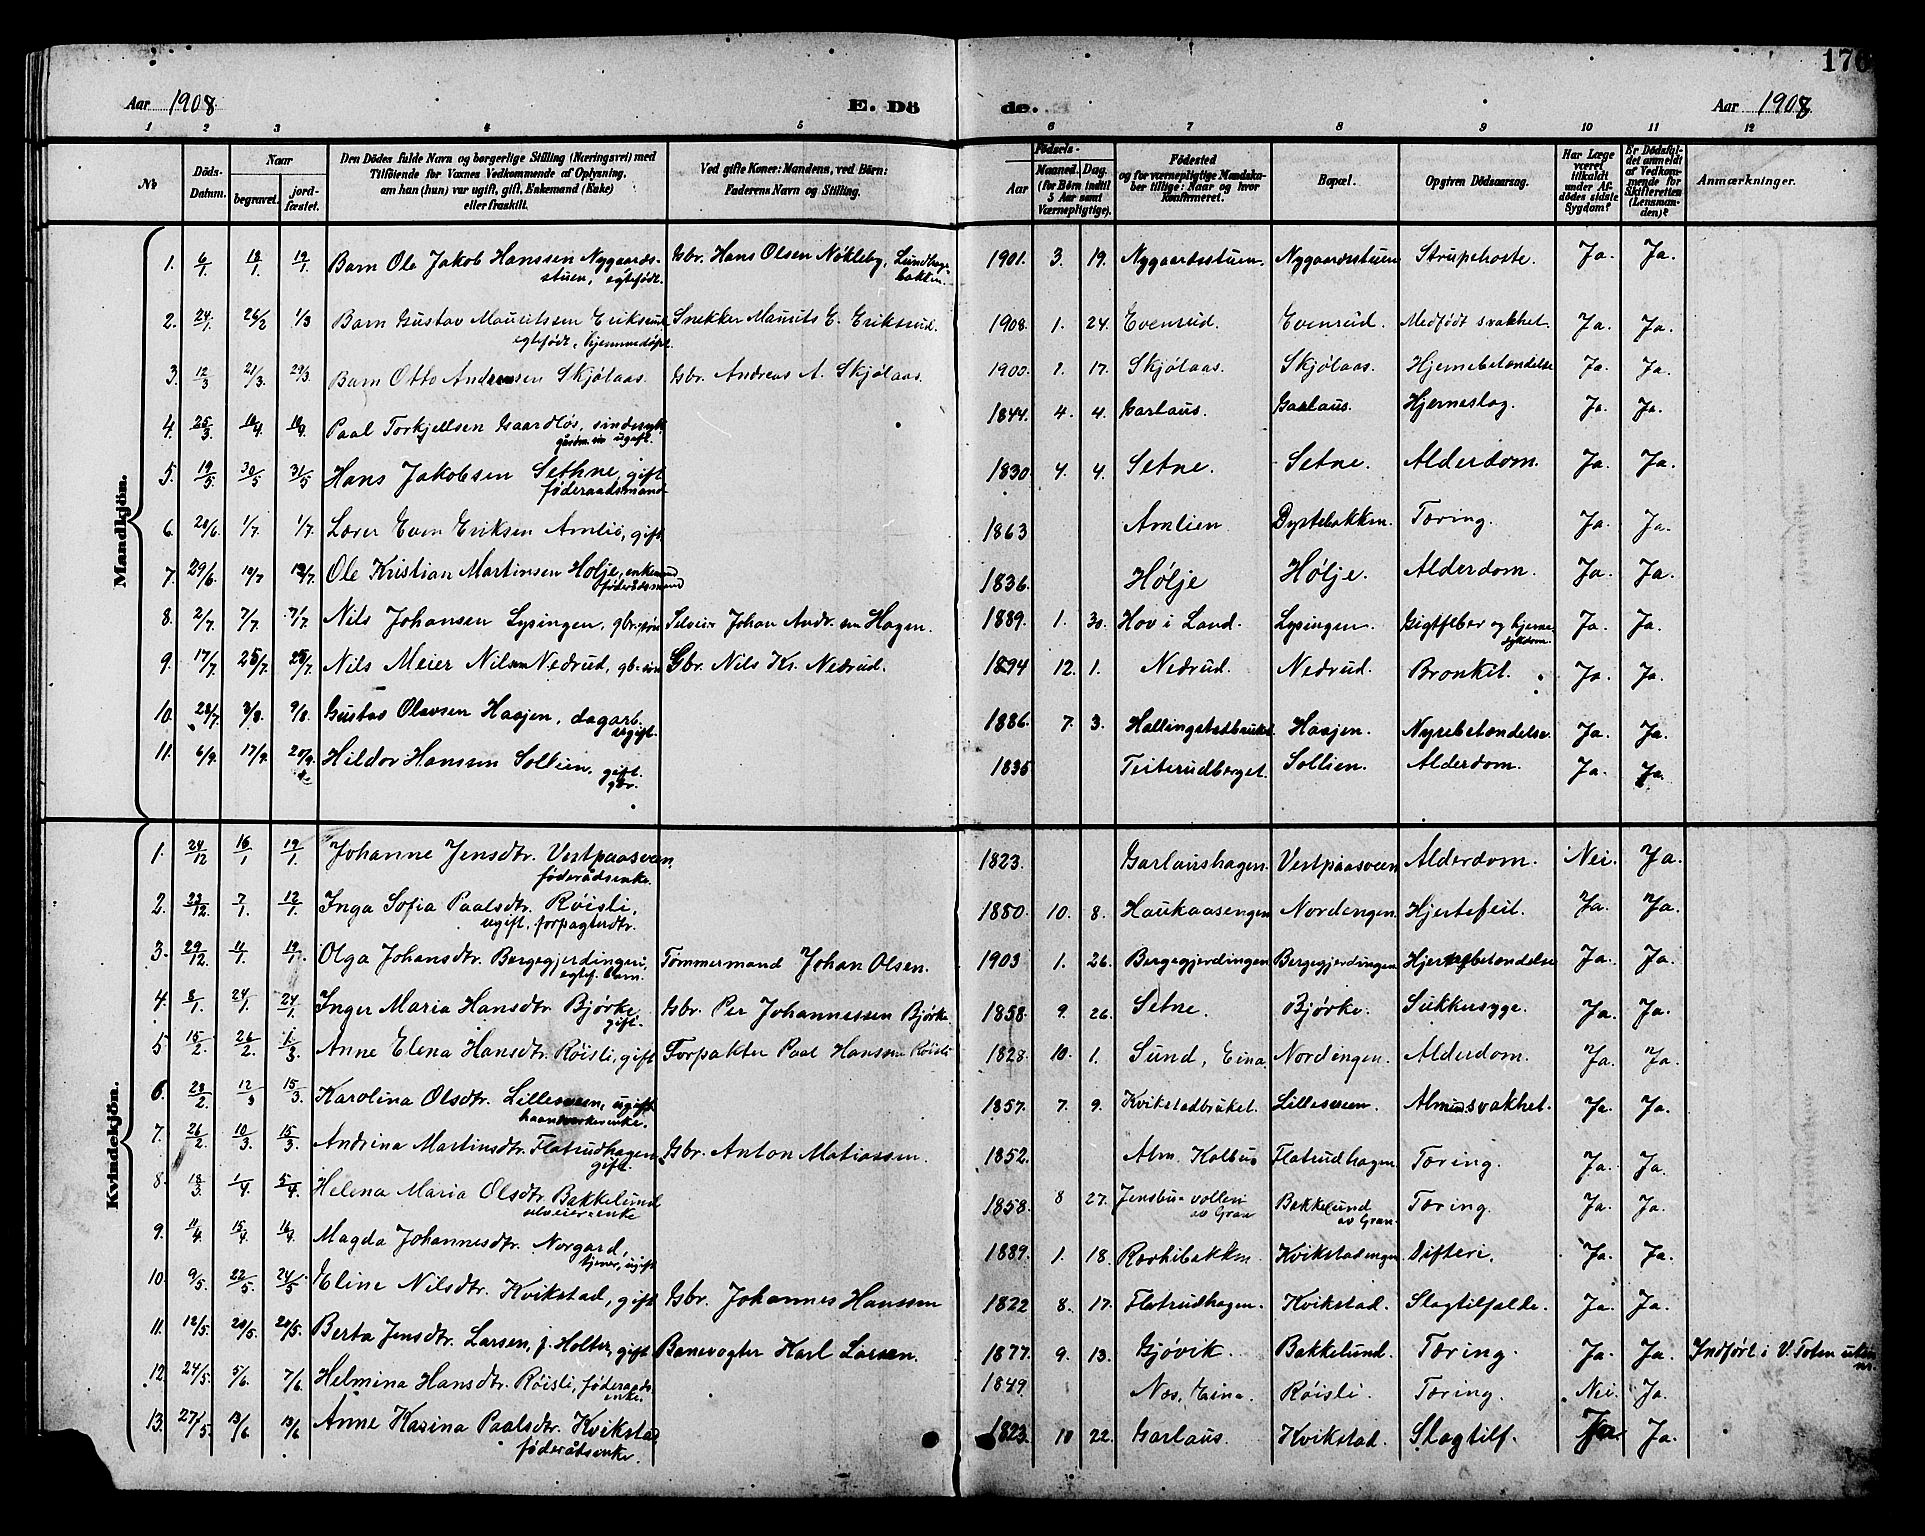 Aar 1908. E. Dö de. Aar 1908 176
1 2 3 4 5 6 7 8 9 10 11 12
No. Döds-Datum. Naar begravet. jordfæstet. Den Dödes fulde Navn og borgerlige Stilling (Næringsvei) med Tilföiende for Voxnes Vedkommende af Oplysning, om han (hun) var ugift, gift, Enkemand (Enke) eller fraskilt. Ved gifte Koner: Mandens, ved Börn: Faderens Navn og Stilling. Födsels- Aar Maaned. Dag. (for Börn indtil 5 Aar samt Værnepligtige). Födested og for værnepligtige Mandskaber tillige: Naar og hvor konfirmeret. Bopæl. Opgiven Dödsaarsag. Har Læge været tilkaldt under Afdödes sidste Sygdom? Er Dödsfaldet anmeldt af Vedkommende for Skifteretten (Lensmanden)? Anmærkninger.
Mandkjön.
1. 6/1. 18/1. 19/1. Barn Ole Jakob Hanssen Nygaardsstuen, egtefødt. Gbr. Hans Olsen Nøkleby, Lundhagebakken. 1901. 3. 19. Nygaardsstuen. Nygaardsstuen Strupehoste. Ja. Ja.
2. 24/1. 26/2 1/3 Barn Gustav Mauritssen Eriksrud egtefødt, hjemmedøpt. Snekker Maurits E. Eriksrud. 1908. 1. 24. Evenrud. Evenrud. Medfødt svakhet. Ja. Ja.
3. 12/3 21/3. 29/3. Barn Otto Andreassen Skjølaas. Gbr. Andreas A. Skjølaas. 1900. 2. 17. Skjølaas. Skjølaas. Hjernebetændelse Ja. Ja.
4. 25/3. 19/4. 19/4. Paal Torkjellsen Gaardløs, sindssyk, ugift. 1844. 4. 4. Garlaus. Garlaus. Hjerneslag. Ja. Ja.
5. 19/5. 30/5 31/5 Hans Jakobsen Sethne, gift føderaadsmand 1830 4. 4. Setne. Setne. Alderdom. Ja. Ja.
6. 28/6. 1/7. 1/7. Lærer Even Eriksen Amlie, gift 1863 Amlien Dystebakken. Tæring. Ja. Ja.
7. 29/6. 12/7 12/7. Ole Kristian Martinsen Holje, enkemand føderådsmand 1836. Hølje Hølje. Alderdom. Ja. Ja.
8. 2/7. 7/7. 7/7. Nils Johansen Lysingen, gbr.søn Selveier Johan Andr.sen Hagen. 1889. 1. 30. Hov i Land. Lysingen. Gigtfeber og hjernesykdom Ja. Ja.
9. 17/7. 25/7. 25/7. Nils Meier Nilsen Nedrud, gb.søn Gbr. Nils Kr. Nedrud. 1894 12. 1. Nedrud. Nedrud. Bronkit. Ja. Ja.
10. 28/7. 3/8. 9/8. Gustav Olavsen Haajen, dagarb. ugift. 1886. 7. 3. Hallingstadbruket. Haajen. Nyrebetændelse. Ja. Ja.
11. 6/9. 17/9. 20/9. Hildor Hanssen Sollien, gift. gbr. 1835 Teiterudberget. Sollien. Alderdom. Ja. Ja.
Kvindekjön.
1. 24/12 16/1 19/1. Johanne Jensdtr. Vestpaasveen føderådsenke. 1823. Garlaushagen. Vestpaasveen Alderdom. Nei. Ja.
2. 23/12. 7/1. 12/1. Inga Sofia Paalsdtr. Røisli, ugift, forpagterdtr. 1880. 10. 8. Haukaasengen Nordengen. Hjertefeil. Ja. Ja.
3. 29/12. 11/1. 19/1. Olga Johansdtr. Bergegjerdingen, egtef. barn. Tømmermand Johan Olsen. 1903 1. 26. Bergegjerdingen Bergegjerdingen Hjernebetændelse Ja. Ja.
4. 8/1. 24/1 24/1. Inger Maria Hansdtr. Bjørke gift. Gbr. Per Johannessen Bjørke 1858. 9. 26. Setne. Bjørke. Sukkersyge. Ja. Ja.
5. 15/2. 26/2. 1/3. Anne Elena Hansdtr. Røisli, gift Forpakter Paal Hanssen Røisli 1828. 10. 1. Sund, Eina Nordengen. Alderdom. Ja. Ja.
6. 28/2. 12/3 15/3. Karolina Olsdtr. Lillesveen, ugift haandverkerenke. 1857. 7. 9. Kvikstadbruket. Lillesveen. Almin. svakhet. Ja. Ja.
7. 26/2. 10/3. 15/3. Andrina Martinsdtr. Flatrudhagen gift. Gbr. Anton Matiassen. 1852. Alm. Kolbu Flatrudhagen Tæring. Ja. Ja.
8. 18/3. 1/4. 5/4. Helena Maria Olsdtr. Bakkelund selveierenke 1858. 8 27. Jensbu-vollen av Gran Bakkelund av Gran. Tæring. Ja. Ja.
9. 11/4. 15/4. 16/4. Magda Johannesdtr. Norgard, tjener, ugift 1889. 1. 18. Rørhibakken Kvikstadengen Difteri. Ja. Ja.
10. 9/5. 22/5. 24/5. Eline Nilsdtr. Kvikstad, gift Gbr. Johannes Hanssen 1822 8. 17. Flatrudhagen. Kvikstad. Slagtilfælde. Ja. Ja.
11. 12/5. 20/5. 20/5. Berta Jensdtr. Larsen, f. Holter, gift Banevogter Karl Larsen. 1877. 9. 13. Gjøvik. Bakkelund. Tæring. Ja. Ja. Indført i V. Toten uten nr.
12. 24/5. 5/6. 7/6. Helmina Hansdtr. Røisli, føderaadsenke. 1849. Næs, Eina. Røisli. Tæring. Nei. Ja.
13. 27/5. 13/6 13/6 Anne Karina Paalsdtr. Kvikstad føderådsenke. 1823. 10 22. Garlaus. Kvikstad. Slagtilf. Ja. Ja.